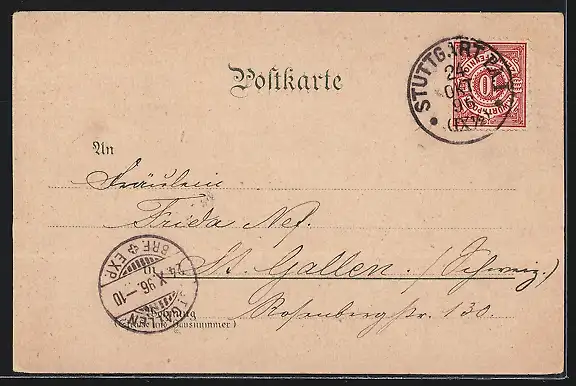 Postkarte
STUTTGART
24
OKT
96
10
An
Fräulein
Frida Nef.
in St. Gallen. (Schweiz.)
Rosenbergstr. 130.
Wohnung
(Straße und Hausnummer)
BRF. EXP.
24. X. 96. – 10
ST. GALLEN